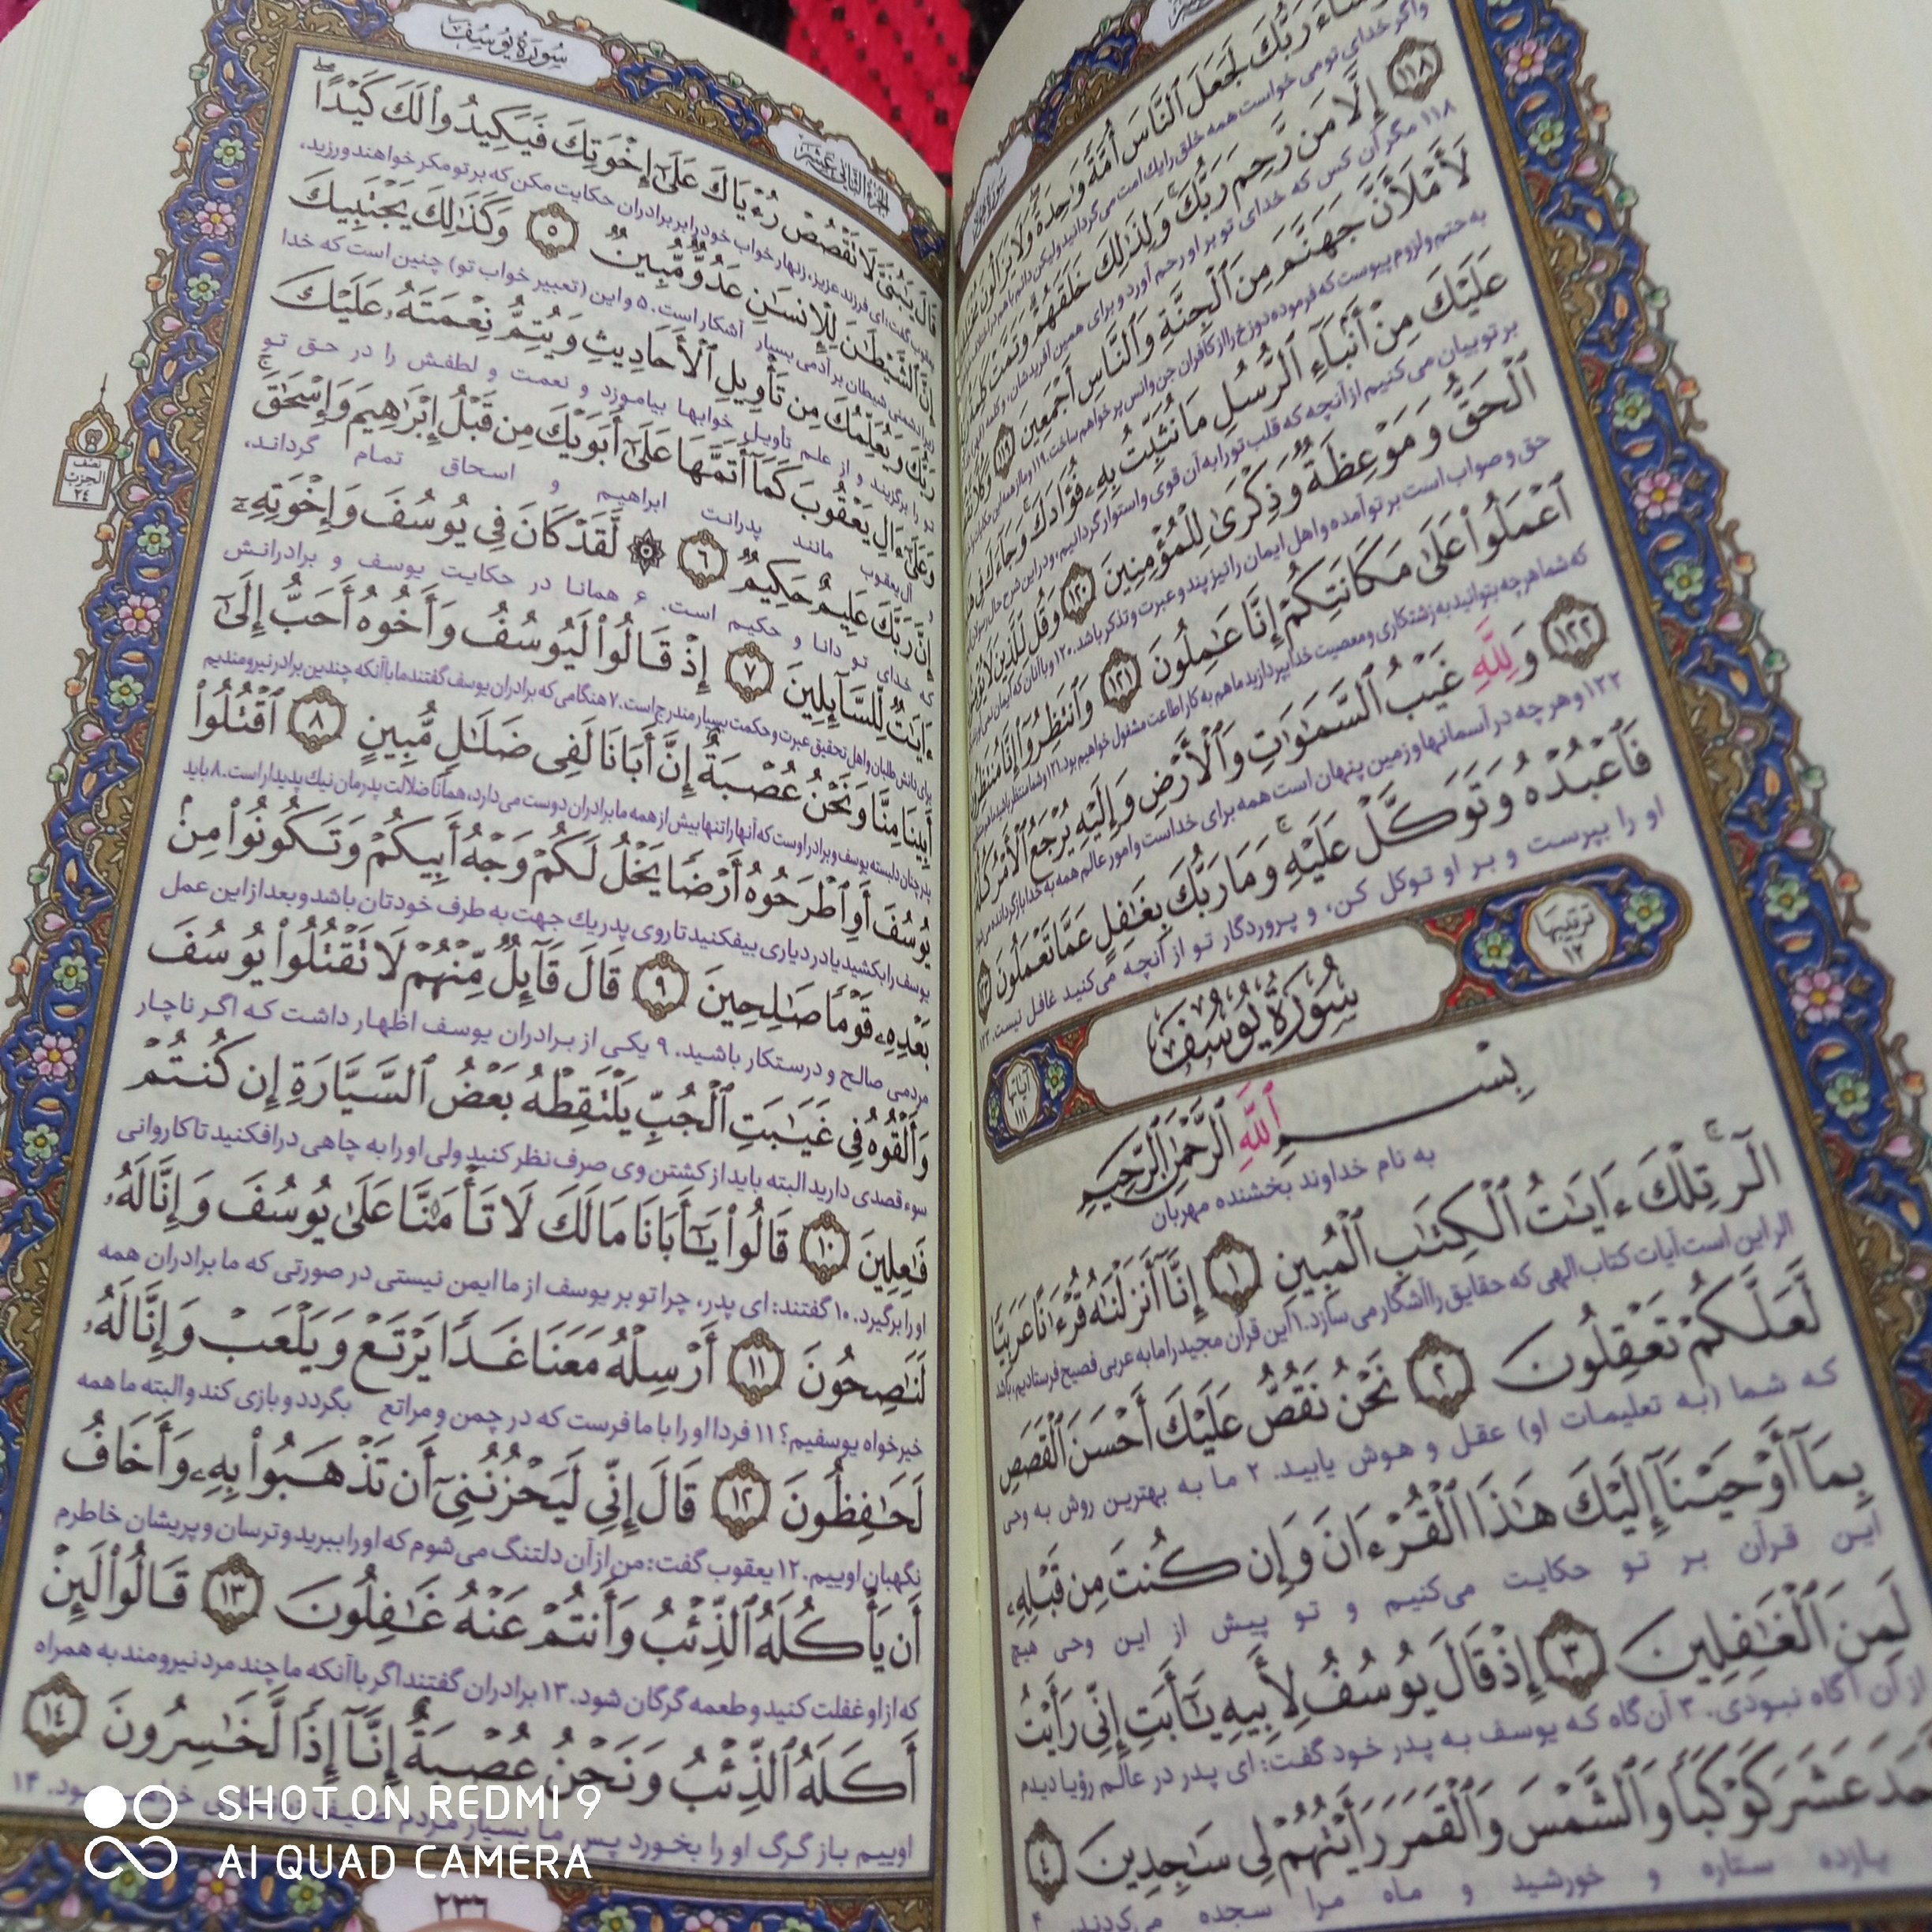 شَآءَ رَبُّكَ لَجَعَلَ ٱلنَّاسَ أُمَّةً وَٰحِدَةً وَلَا يَزَالُونَ
واگر خدای تو می خواست همه خلق را یک امت می گردانید ولیکن دائم با هم در
١١٨ إِلَّا مَن رَّحِمَ رَبُّكَ وَلِذَٰلِكَ خَلَقَهُمْ وَتَمَّتْ كَلِمَةُ
۱۱۸ مگر آن کس که خدای تو بر او رحم آورد و برای همین آفریدشان، و کلمه
لَأَمْلَأَنَّ جَهَنَّمَ مِنَ ٱلْجِنَّةِ وَٱلنَّاسِ أَجْمَعِينَ ١١٩ وَكُلًّا
به حتم ولزوم پیوست که فرموده دوزخ را از کافران جن و انس پر خواهم ساخت. ۱۱۹ و ما
عَلَيْكَ مِنْ أَنۢبَآءِ ٱلرُّسُلِ مَا نُثَبِّتُ بِهِۦ فُؤَادَكَ وَجَآءَكَ فِى
بر تو بیان می کنیم از آنچه که قلب تو را به آن قوی و استوار گردانیم، و در این شرح حال رسولان
ٱلْحَقُّ وَمَوْعِظَةٌ وَذِكْرَىٰ لِلْمُؤْمِنِينَ ١٢٠ وَقُل لِّلَّذِينَ لَا يُؤْمِنُونَ
حق و صواب است بر تو آمده و اهل ایمان را نیز پند و عبرت و تذکر باشد. ۱۲۰ و با آنان که ایمان نمی آورند
ٱعْمَلُوا۟ عَلَىٰ مَكَانَتِكُمْ إِنَّا عَٰمِلُونَ ١٢١ وَٱنتَظِرُوٓا۟ إِنَّا مُنتَظِرُونَ
که شما هر چه بتوانید به زشتکاری و معصیت خدا بپردازید ما هم به کار اطاعت مشغول خواهیم بود. ۱۲۱ و شما منتظر باشید
١٢٢ وَلِلَّهِ غَيْبُ ٱلسَّمَٰوَٰتِ وَٱلْأَرْضِ وَإِلَيْهِ يُرْجَعُ ٱلْأَمْرُ كُلُّهُۥ
۱۲۲ و هر چه در آسمانها و زمین پنهان است همه برای خداست و امور عالم همه به خدا باز گردانده می شود
فَٱعْبُدْهُ وَتَوَكَّلْ عَلَيْهِ وَمَا رَبُّكَ بِغَٰفِلٍ عَمَّا تَعْمَلُونَ ١٢٣
او را بپرست و بر او توکل کن، و پروردگار تو از آنچه می‌کنید غافل نیست. ۱۲۳
ترتيبها ١٢
سُورَةُ يُوسُفَ
آياتها ١١١
بِسْمِ ٱللَّهِ ٱلرَّحْمَٰنِ ٱلرَّحِيمِ
به نام خداوند بخشنده مهربان
الٓر تِلْكَ ءَايَٰتُ ٱلْكِتَٰبِ ٱلْمُبِينِ ١ إِنَّآ أَنزَلْنَٰهُ قُرْءَٰنًا عَرَبِيًّا
الر این است آیات کتاب الهی که حقایق را آشکار می سازد. ۱ این قرآن مجید را ما به عربی فصیح فرستادیم، باشد
لَّعَلَّكُمْ تَعْقِلُونَ ٢ نَحْنُ نَقُصُّ عَلَيْكَ أَحْسَنَ ٱلْقَصَصِ
که شما (به تعلیمات او) عقل و هوش یابید. ۲ ما به بهترین روش به وحی
بِمَآ أَوْحَيْنَآ إِلَيْكَ هَٰذَا ٱلْقُرْءَانَ وَإِن كُنتَ مِن قَبْلِهِۦ
این قرآن بر تو حکایت می‌کنیم و تو پیش از این وحی هیچ
لَمِنَ ٱلْغَٰفِلِينَ ٣ إِذْ قَالَ يُوسُفُ لِأَبِيهِ يَٰٓأَبَتِ إِنِّى رَأَيْتُ
از آن آگاه نبودی. ۳ آن‌گاه که یوسف به پدر خود گفت: ای پدر در عالم رؤیا دیدم
أَحَدَ عَشَرَ كَوْكَبًا وَٱلشَّمْسَ وَٱلْقَمَرَ رَأَيْتُهُمْ لِى سَٰجِدِينَ ٤
یازده ستاره و خورشید و ماه مرا سجده می‌کردند. ۴
سُورَةُ يُوسُفَ
الجزء الثانى عشر
قَالَ يَٰبُنَىَّ لَا تَقْصُصْ رُءْيَاكَ عَلَىٰٓ إِخْوَتِكَ فَيَكِيدُوا۟ لَكَ كَيْدًا
یعقوب گفت: ای فرزند عزیز، زنهار خواب خود را بر برادران حکایت مکن که بر تو مکر خواهند ورزید،
إِنَّ ٱلشَّيْطَٰنَ لِلْإِنسَٰنِ عَدُوٌّ مُّبِينٌ ٥ وَكَذَٰلِكَ يَجْتَبِيكَ
زیرا دشمنی شیطان بر آدمی بسیار آشکار است. ۵ و این (تعبیر خواب تو) چنین است که خدا
رَبُّكَ وَيُعَلِّمُكَ مِن تَأْوِيلِ ٱلْأَحَادِيثِ وَيُتِمُّ نِعْمَتَهُۥ عَلَيْكَ
تو را برگزیند و از علم تأویل خوابها بیاموزد و نعمت و لطفش را در حق تو
وَعَلَىٰٓ ءَالِ يَعْقُوبَ كَمَآ أَتَمَّهَا عَلَىٰٓ أَبَوَيْكَ مِن قَبْلُ إِبْرَٰهِيمَ وَإِسْحَٰقَ
و آل یعقوب مانند پدرانت ابراهیم و اسحاق تمام گرداند،
إِنَّ رَبَّكَ عَلِيمٌ حَكِيمٌ ٦ لَّقَدْ كَانَ فِى يُوسُفَ وَإِخْوَتِهِۦٓ
که خدای تو دانا و حکیم است. ۶ همانا در حکایت یوسف و برادرانش
ءَايَٰتٌ لِّلسَّآئِلِينَ ٧ إِذْ قَالُوا۟ لَيُوسُفُ وَأَخُوهُ أَحَبُّ إِلَىٰٓ
برای دانش طلبان و اهل تحقیق عبرت و حکمت بسیار مندرج است. ۷ هنگامی که برادران یوسف گفتند ما با آنکه چندین برادر نیرومندیم
أَبِينَا مِنَّا وَنَحْنُ عُصْبَةٌ إِنَّ أَبَانَا لَفِى ضَلَٰلٍ مُّبِينٍ ٨ ٱقْتُلُوا۟
پدر چنان دلبسته یوسف و برادر اوست که آنها را تنها بیش از همه ما برادران دوست می دارد، همانا ضلالت پدرمان نیک پدیدار است. ۸ باید
يُوسُفَ أَوِ ٱطْرَحُوهُ أَرْضًا يَخْلُ لَكُمْ وَجْهُ أَبِيكُمْ وَتَكُونُوا۟ مِنۢ
یوسف را بکشید یا در دیاری بیفکنید تا روی پدر یک جهت به طرف خودتان باشد و بعد از این عمل
بَعْدِهِۦ قَوْمًا صَٰلِحِينَ ٩ قَالَ قَآئِلٌ مِّنْهُمْ لَا تَقْتُلُوا۟ يُوسُفَ
مردمی صالح و درستکار باشید. ۹ یکی از برادران یوسف اظهار داشت که اگر ناچار
وَأَلْقُوهُ فِى غَيَٰبَتِ ٱلْجُبِّ يَلْتَقِطْهُ بَعْضُ ٱلسَّيَّارَةِ إِن كُنتُمْ
سوء قصدی دارید البته باید از کشتن وی صرف نظر کنید ولی او را به چاهی درافکنید تا کاروانی
فَٰعِلِينَ ١٠ قَالُوا۟ يَٰٓأَبَانَا مَا لَكَ لَا تَأْمَ۫نَّا عَلَىٰ يُوسُفَ وَإِنَّا لَهُۥ
او را برگیرد. ۱۰ گفتند: ای پدر، چرا تو بر یوسف از ما ایمن نیستی در صورتی که ما برادران همه
لَنَٰصِحُونَ ١١ أَرْسِلْهُ مَعَنَا غَدًا يَرْتَعْ وَيَلْعَبْ وَإِنَّا لَهُۥ
خیرخواه یوسفیم؟ ۱۱ فردا او را با ما فرست که در چمن و مراتع بگردد و بازی کند و البته ما همه
لَحَٰفِظُونَ ١٢ قَالَ إِنِّى لَيَحْزُنُنِىٓ أَن تَذْهَبُوا۟ بِهِۦ وَأَخَافُ
نگهبان اوییم. ۱۲ یعقوب گفت: من از آن دلتنگ می‌شوم که او را ببرید و ترسان و پریشان خاطرم
أَن يَأْكُلَهُ ٱلذِّئْبُ وَأَنتُمْ عَنْهُ غَٰفِلُونَ ١٣ قَالُوا۟ لَئِنْ
که از او غفلت کنید و طعمه گرگان شود. ۱۳ برادران گفتند اگر با آنکه ما چند مرد نیرومند به همراه
أَكَلَهُ ٱلذِّئْبُ وَنَحْنُ عُصْبَةٌ إِنَّآ إِذًا لَّخَٰسِرُونَ ١٤
اوییم باز گرگ او را بخورد پس ما بسیار مردم
۱۴
نصف الحزب ٢٤
٢٣٦
SHOT ON REDMI 9
AI QUAD CAMERA